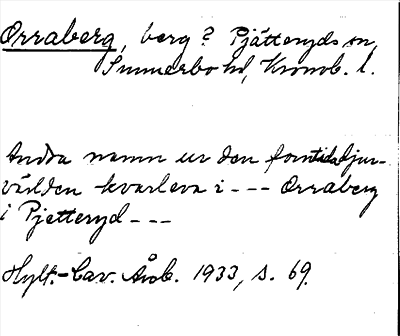 Orraberg, berg? Pjätteryds sn,
Sunnerbo hd, Kronob. l.
Andra namn ur den forntida djur-
världen kvarleva i --- Orraberg
i Pjetteryd ---
Hylt.-Cav. Årsb. 1933, s. 69.